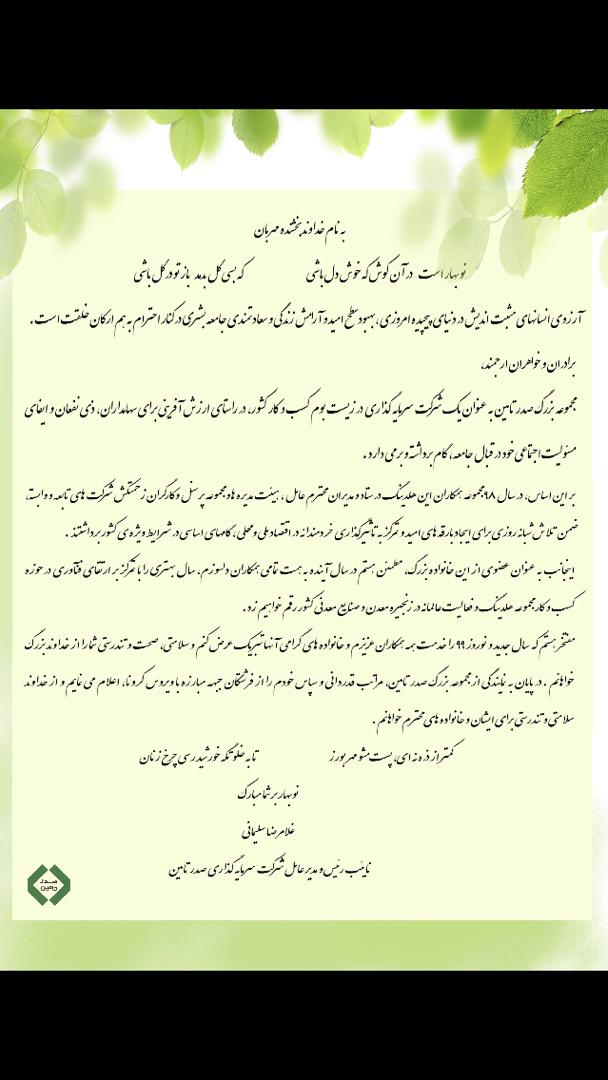 به نام خداوند بخشنده مهربان
نوبهار است در آن کوش که خوش دل باشی که بسی گل بدمد باز تو در گل باشی
آرزوی انسانهای مثبت اندیش در دنیای پیچیده امروزی، بهبود سطح امید و آرامش زندگی و سعادتمندی جامعه بشری در کنار احترام به هم ارکان خلقت است.
برادران و خواهران ارجمند،
مجموعه بزرگ صدر تامین به عنوان یک شرکت سرمایه گذاری در زیست بوم کسب و کار کشور، در راستای ارزش آفرینی برای سهامداران، ذی نفعان و ایفای
مسئولیت اجتماعی خود در قبال جامعه، گام برداشته و برمی دارد.
بر این اساس، در سال ۹۸ مجموعه همکاران این هلدینگ در ستاد و مدیران محترم عامل، هیئت مدیره ها و مجموعه پرسنل و کارگران زحمتکش شرکت های تابعه و وابسته،
ضمن تلاش شبانه روزی برای ایجاد بارقه های امید و تمرکز به تأثیرگذاری خردمندانه در اقتصاد ملی و محلی، گامهای اساسی در شرایط ویژه ی کشور برداشتند.
اینجانب به عنوان عضوی از این خانواده بزرگ، مطمئن هستم در سال آینده به همت تمامی همکاران دلسوزم، سال بهتری را با تمرکز بر ارتقای فناوری در حوزه
کسب و کار مجموعه هلدینگ و فعالیت عالمانه در زنجیره معدن و صنایع معدنی کشور رقم خواهیم زد.
مفتخر هستم که سال جدید و نوروز ۹۹ را خدمت همه همکاران عزیزم و خانواده های گرامی آنها تبریک عرض کنم و سلامتی، صحت و تندرستی شما را از خداوند بزرگ
خواهانم. در پایان به نمایندگی از مجموعه بزرگ صدر تامین، مراتب قدردانی و سپاس خودم را از فرشتگان جبهه مبارزه با ویروس کرونا، اعلام می نمایم و از خداوند
سلامتی و تندرستی برای ایشان و خانواده های محترم خواهانم.
کمتر از ذره نه ای، پست مشو مهر بورز تا به خلوتگه خورشید رسی چرخ زنان
نوبهار بر شما مبارک
غلامرضا سلیمانی
نائب رئیس و مدیر عامل شرکت سرمایه گذاری صدر تامین
صدر
تامین